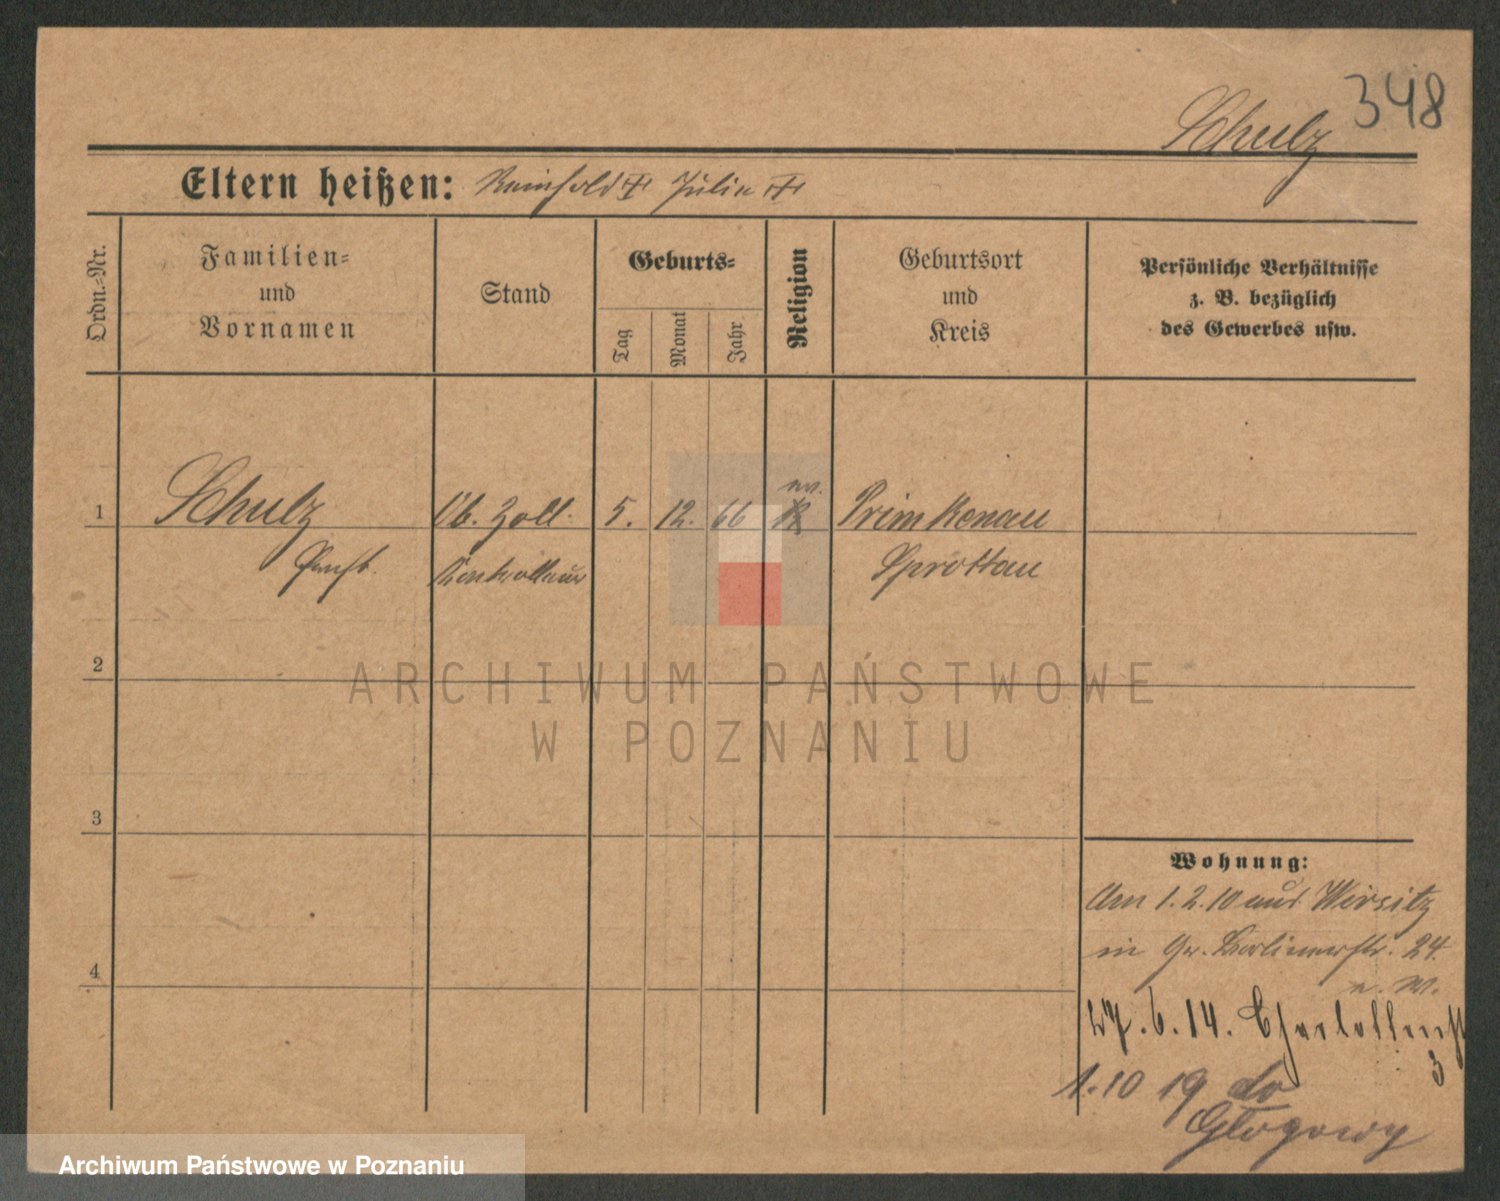 348
Schulz
Eltern heißen: Reinhold Julie
Ordn.-Nr.
Familien=
und
Vornamen
Stand
Geburts=
Tag
Monat
Jahr
Religion
Geburtsort
und
Kreis
Persönliche Verhältnisse
z. B. bezüglich
des Gewerbes usw.
1 Schulz Ob. Zoll. 5. 12. 66 ev. Primkenau
Kontrolleur Sprottau
2
3
4
Wohnung:
Am 1.2.10 aus Wirsitz
in Gr. Berlinerstr. 24.
27.6.14. Charlottenst
3
1.10 19 do
Głogowy
ARCHIWUM PAŃSTWOWE
W POZNANIU
Archiwum Państwowe w Poznaniu